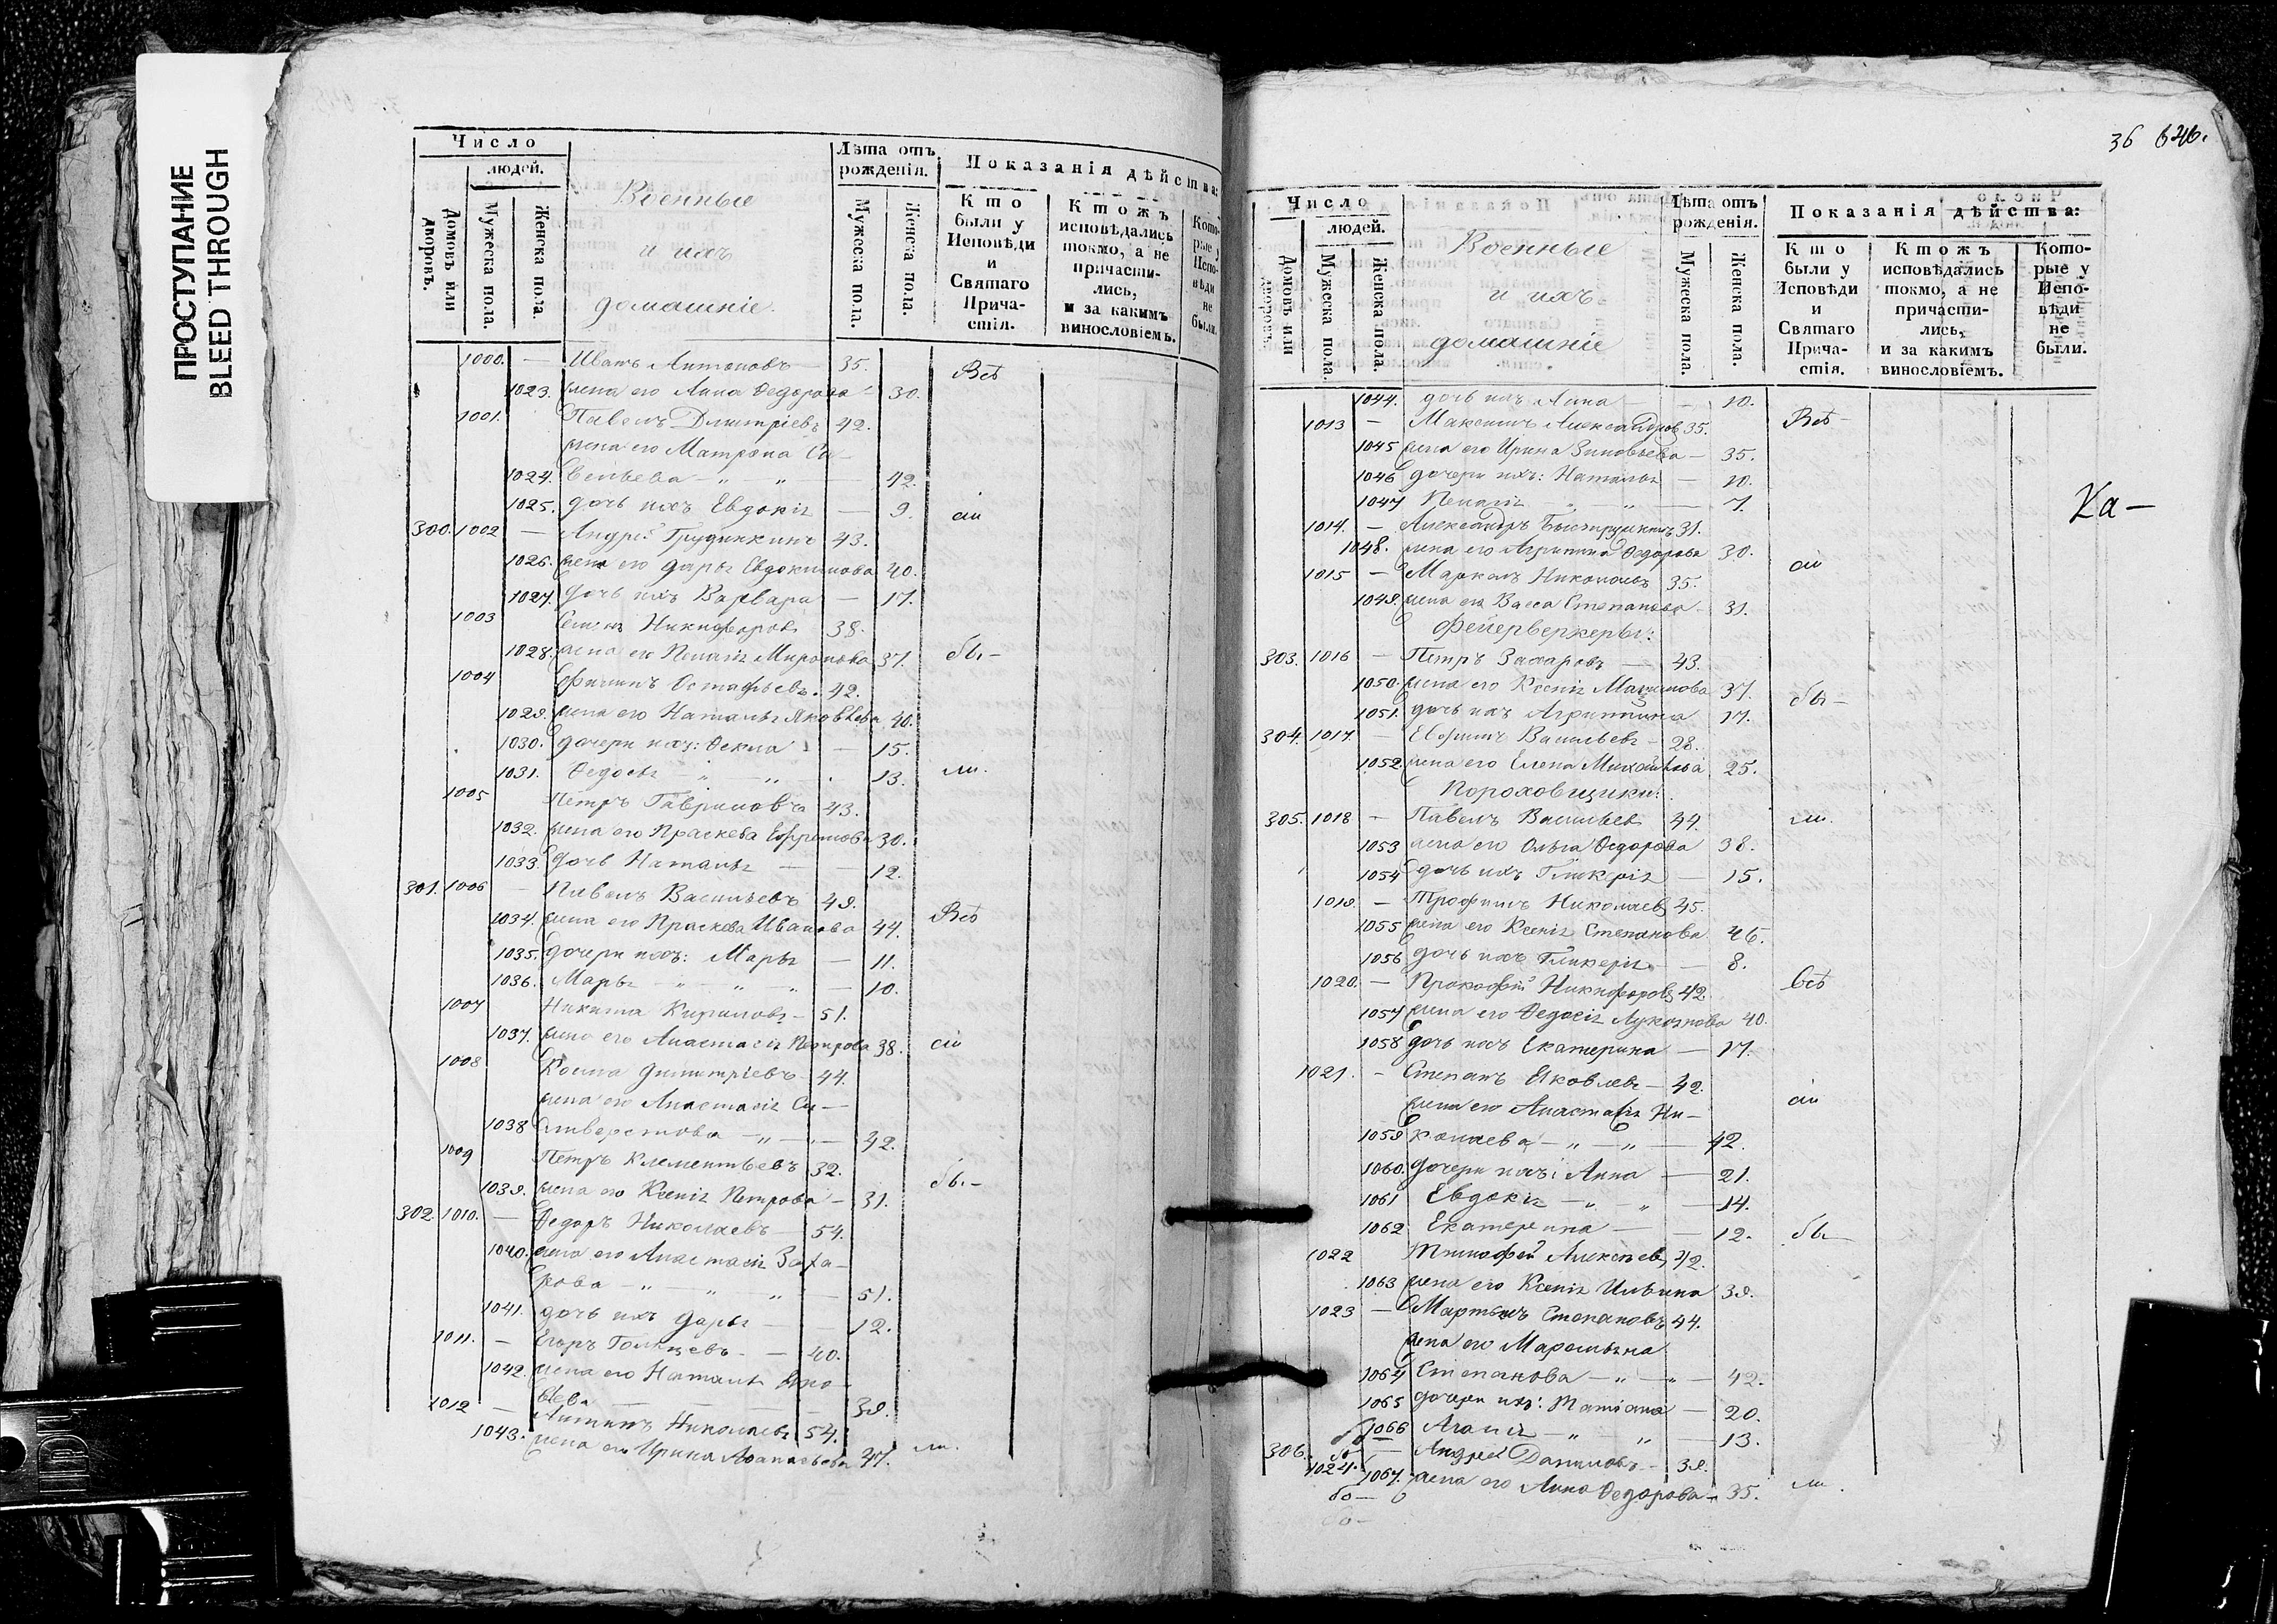 ПРОСТУПАНИЕ
BLEED THROUGH
Число
людей.
Домовъ или дворовъ.
Мужеска пола.
Женска пола.
Военные
и ихъ
домашніе.
Лѣта отъ рожденія.
Мужеска пола.
Женска пола.
Показанія дѣйства:
Кто были у Исповѣди и Святаго Прича-стія.
Ктожъ исповѣдались токмо, а не причасти-лись, и за какимъ винословіемъ.
Кото-рые у Испо-вѣди не были.
1000. — Иванъ Антоновъ — 35. Всѣ
1023. жена его Анна Ѳедорова — 30.
1001. Павелъ Дмитріевъ 42.
жена его Матрона Са-
1024. вельева — „ „ — 42.
1025. дочь ихъ Евдокія — 9. сіи
300. 1002 — Андрей 43.
1026. жена его Дарья Евдокимова 40.
1027. дочь ихъ Варвара — 17.
1003 Никифоровъ 38.
1028. жена его Пелагія Миронова 37. бы-
1004 Остафьевъ. 42.
1029. жена его Наталья Яковлева 40.
1030. дочери ихъ: Ѳекла — 15.
1031. Ѳедосья „ „ 13. ли.
1005 Петръ Гавриловъ 43.
1032. жена его Праскева Ефремова 30.
1033. дочь Наталья — — 12.
301. 1006 — Павелъ Васильевъ 49.
1034. жена его Праскева Иванова 44. Всѣ
1035. дочери ихъ: Марья — 11.
1036. Марья — „ — „ — „ — 10.
1007 Никита Кириловъ — 51.
1037. жена его Анастасія Петрова 38. сіи
1008 Косма Димитріевъ 44.
жена его Анастасія Си-
1038 ливерстова — „ — „ — 42.
1009 Петръ Клементьевъ 32.
1039. жена его Ксенія Петрова — 31. бы-
302. 1010. — Ѳедоръ Николаевъ — 54.
1040. жена его Анастасія Заха-
рова — „ — „ „ — 51.
1041. дочь ихъ Дарья — — 12.
1011. — Егоръ — 40.
1042. жена его Наталья Яко-
влева — — — 39.
1012 — Антипъ Николаевъ 54.
1043. жена его Ирина Аѳанасьева 47. ли.
36 646.
Число
людей.
Домовъ или дворовъ.
Мужеска пола.
Женска пола.
Военные
и ихъ
домашніе
Лѣта отъ рожденія.
Мужеска пола.
Женска пола.
Показанія дѣйства:
Кто были у Исповѣди и Святаго Прича-стія.
Ктожъ исповѣдались токмо, а не причасти-лись, и за какимъ винословіемъ.
Кото-рые у Испо-вѣди не были.
1044. дочь ихъ Анна — — 10.
1013 — Максимъ Александровъ 35. Всѣ-
1045 жена его Ирина Зиновьева — 35.
1046 дочери ихъ: Наталья — 10.
1047 Пелагія — „ — „ — 7.
Ка-
1014. — Александръ 31.
1048. жена его Агрипина Ѳедорова 30. сіи
1015 — Маркелъ 35.
1049. жена его Васса Степанова — 31.
Фейерверкеры:
303. 1016 — Петръ Захаровъ — 43.
1050. жена его Ксенія 37. бы-
1051. дочь ихъ Агрипина 17.
304. 1017. — Ефимъ Васильевъ — 28.
1052. жена его Елена Михайлова 25.
Пороховщики:
305. 1018 — Павелъ Васильевъ 44. ли.
1053 жена его Ольга Ѳедорова 38.
1054 дочь ихъ Гликерія — 15.
1019. — Трофимъ Николаевъ 45.
1055 жена его Ксенія Степанова 46.
1056 дочь ихъ Гликерія — 8.
1020. — Прокофій Никифоровъ 42 всѣ
1057 жена его Ѳедосія Лукоянова 40.
1058 дочь ихъ Екатерина — 17.
1021. — Степанъ Яковлевъ — 42.
жена его Анастасія Ни- сіи
1059 колаева — „ — „ — 42.
1060. дочери ихъ: Анна — 21.
1061 Евдокія — „ — „ — 14.
1062 Екатерина — — 12. бы-
1022 Тимофей Алексѣевъ 42.
1063 жена его Ксенія Ильина 39.
1023 — Мартынъ Степановъ 44.
жена его Маремьяна
1064 Степанова — „ — „ — 42.
1065 дочери ихъ: Татіана — 20.
1066 Агапія — „ „ — 13.
306. 1024. — Андрей Даниловъ — 39.
1067. жена его Анна Ѳедорова — 35. ли.